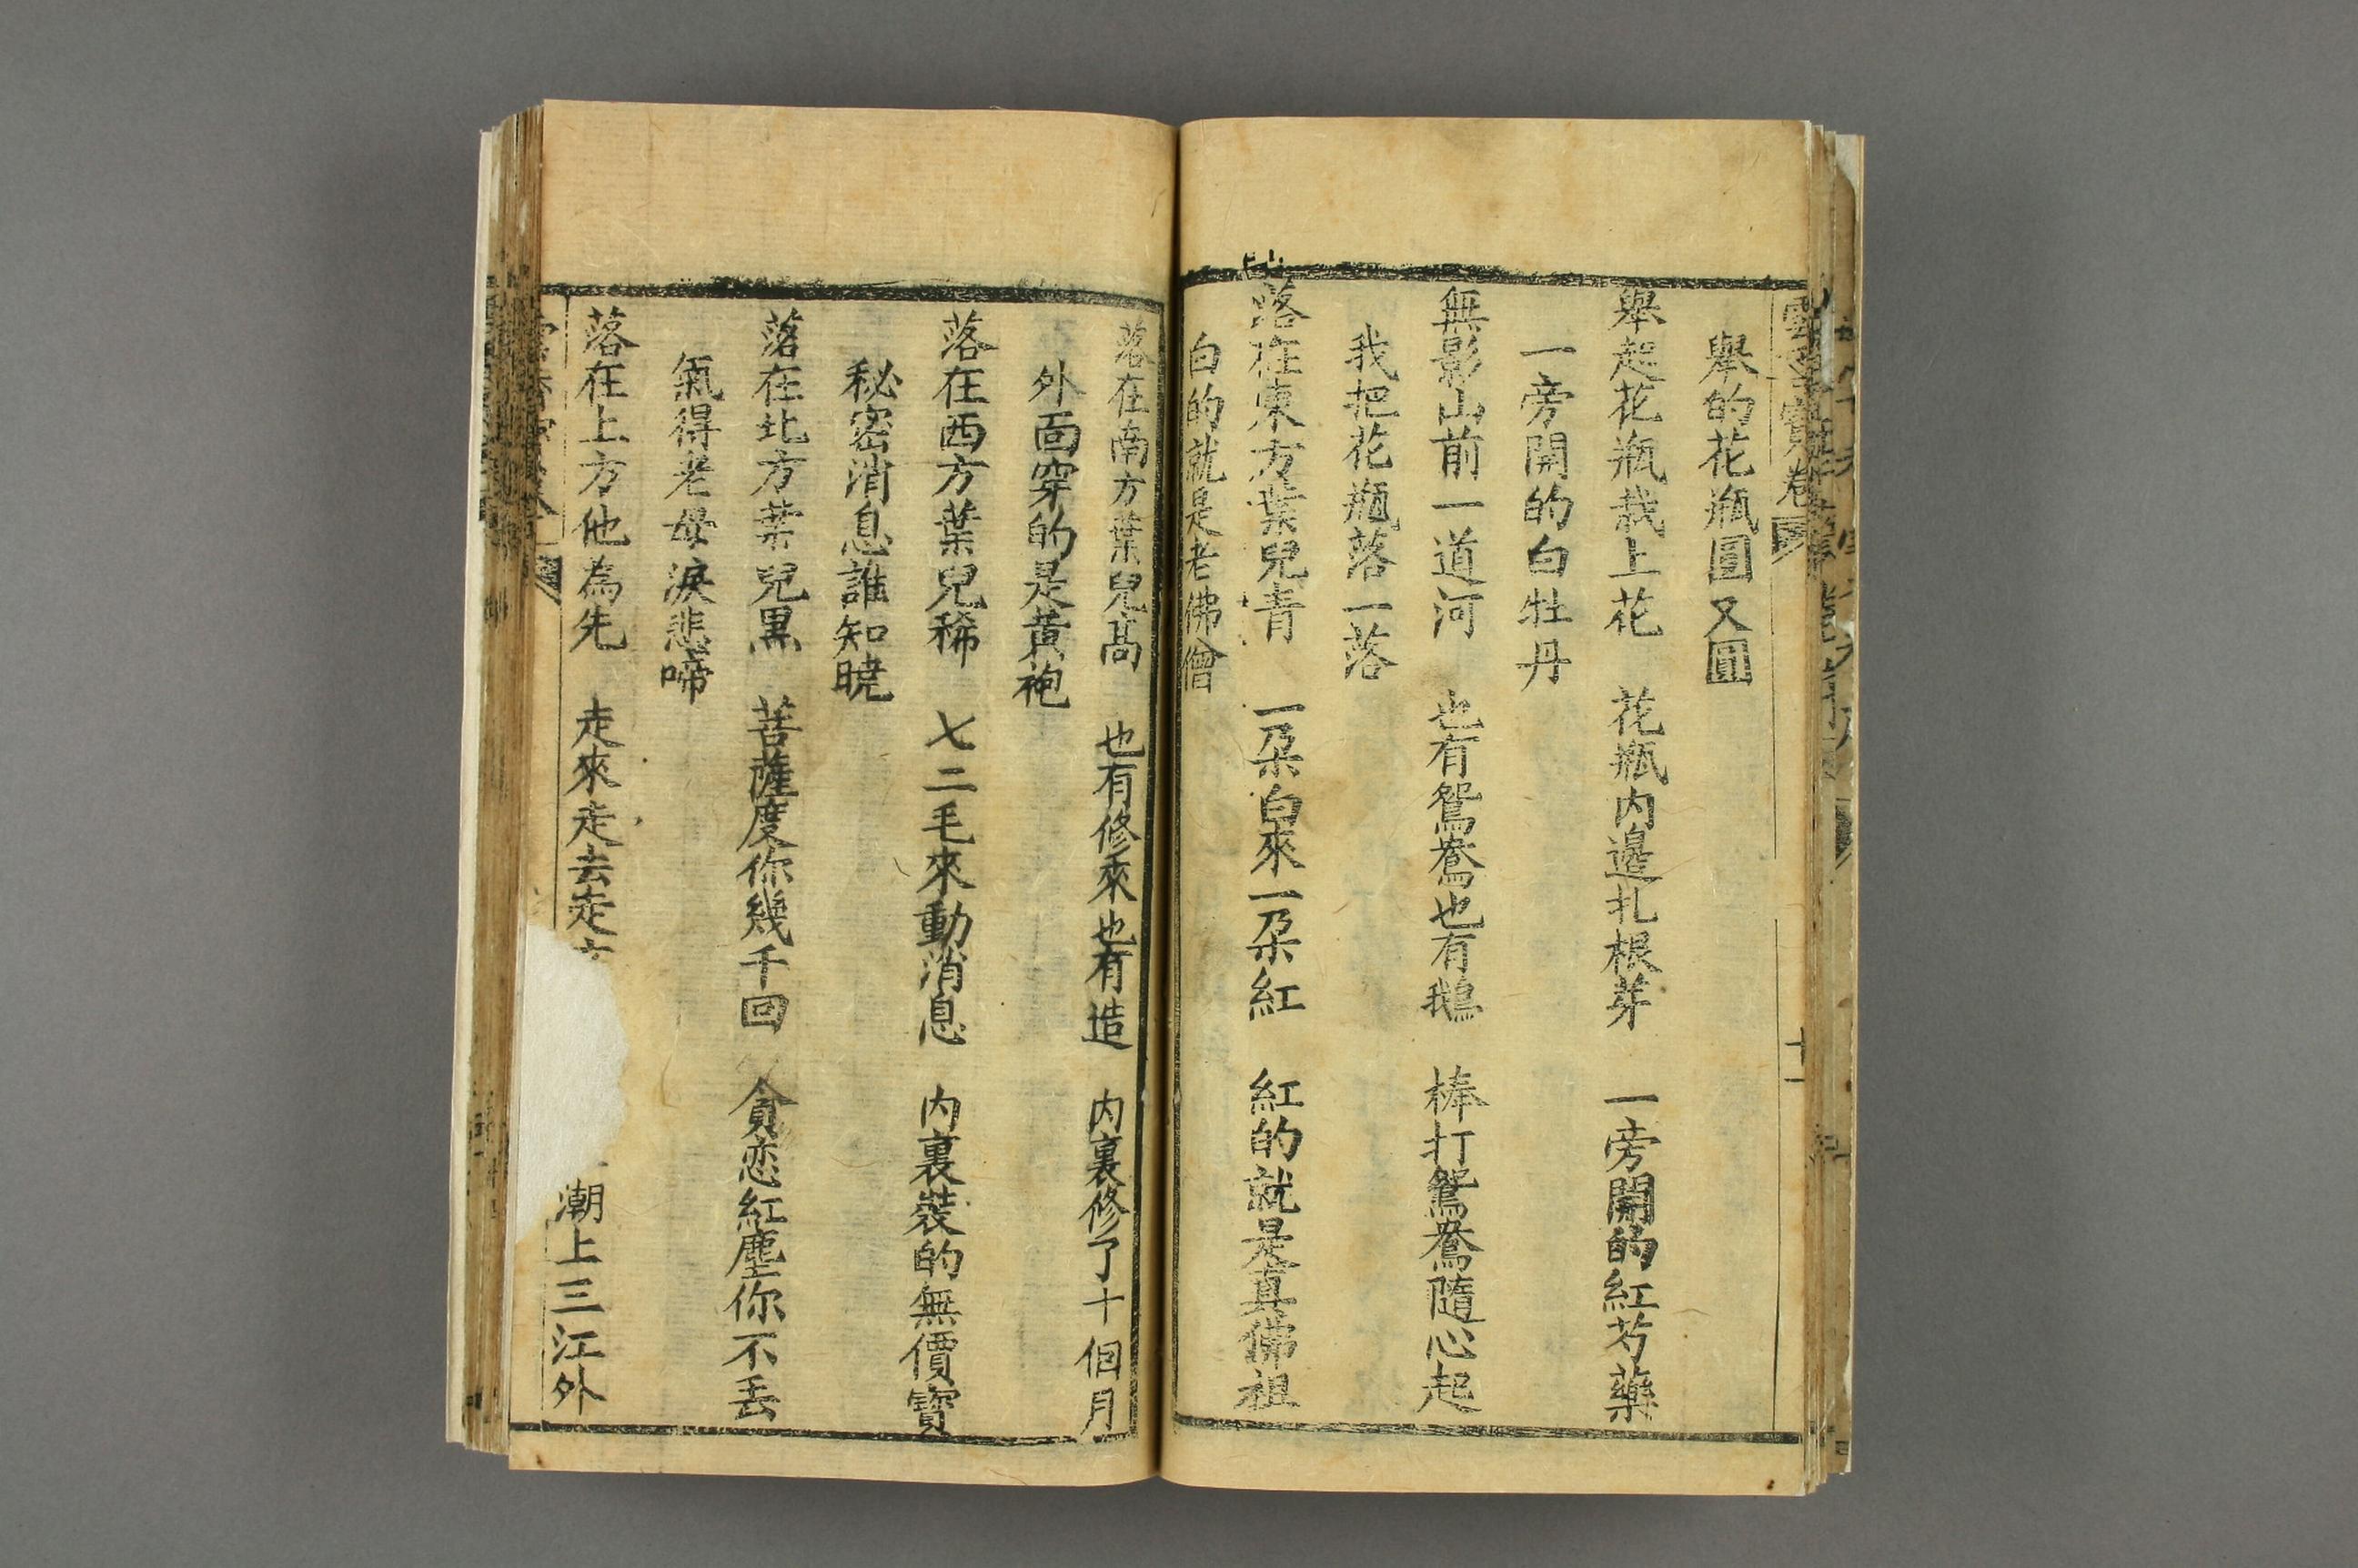 舉的花瓶圓又圓
舉起花瓶栽上花 花瓶内邊扎根芽 一旁開的紅芍藥
一旁開的白牡丹
無影山前一道河 也有鴛鴦也有鵝 棒打鴛鴦隨心起
我把花瓶落一落
落在東方葉兒青 一朶白來一朶紅 紅的就是真佛祖
白的就是老佛僧
落在南方葉兒高 也有修來也有造 内裏修了十個月
外面穿的是黄袍
落在西方葉兒稀 七二毛來動消息 内裏裝的無價寶
秘密消息誰知曉
落在北方葉兒黑 菩薩度你幾千回 貪恋紅塵你不丟
氣得老母淚悲啼
落在上方他為先 走來走去走 潮上三江外